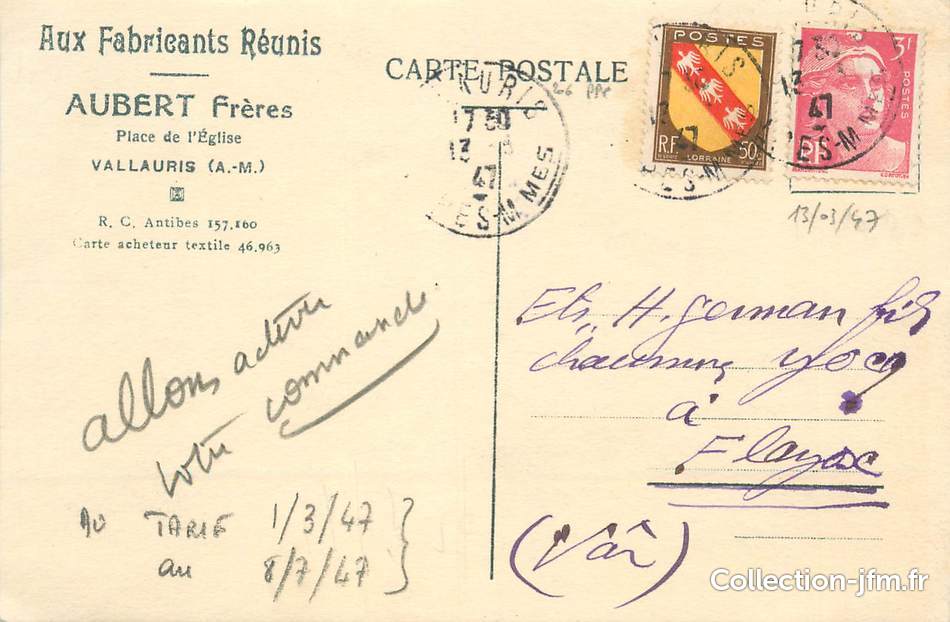 Aux Fabricants Réunis
AUBERT Frères
Place de l'Église
VALLAURIS (A.-M.)
R. C. Antibes 157.160
Carte acheteur textile 46.963
CARTE POSTALE
17 30
13 - 3
47
MES
POSTES
RF LORRAINE 50c
3F
POSTES
RF
17 30
13
47
13/03/47
Ets H. german fils
chaussures yocq
à
Flayosc
(Var)
allons activer
votre commande
AU TARIF 1/3/47
au 8/7/47
Collection-jfm.fr